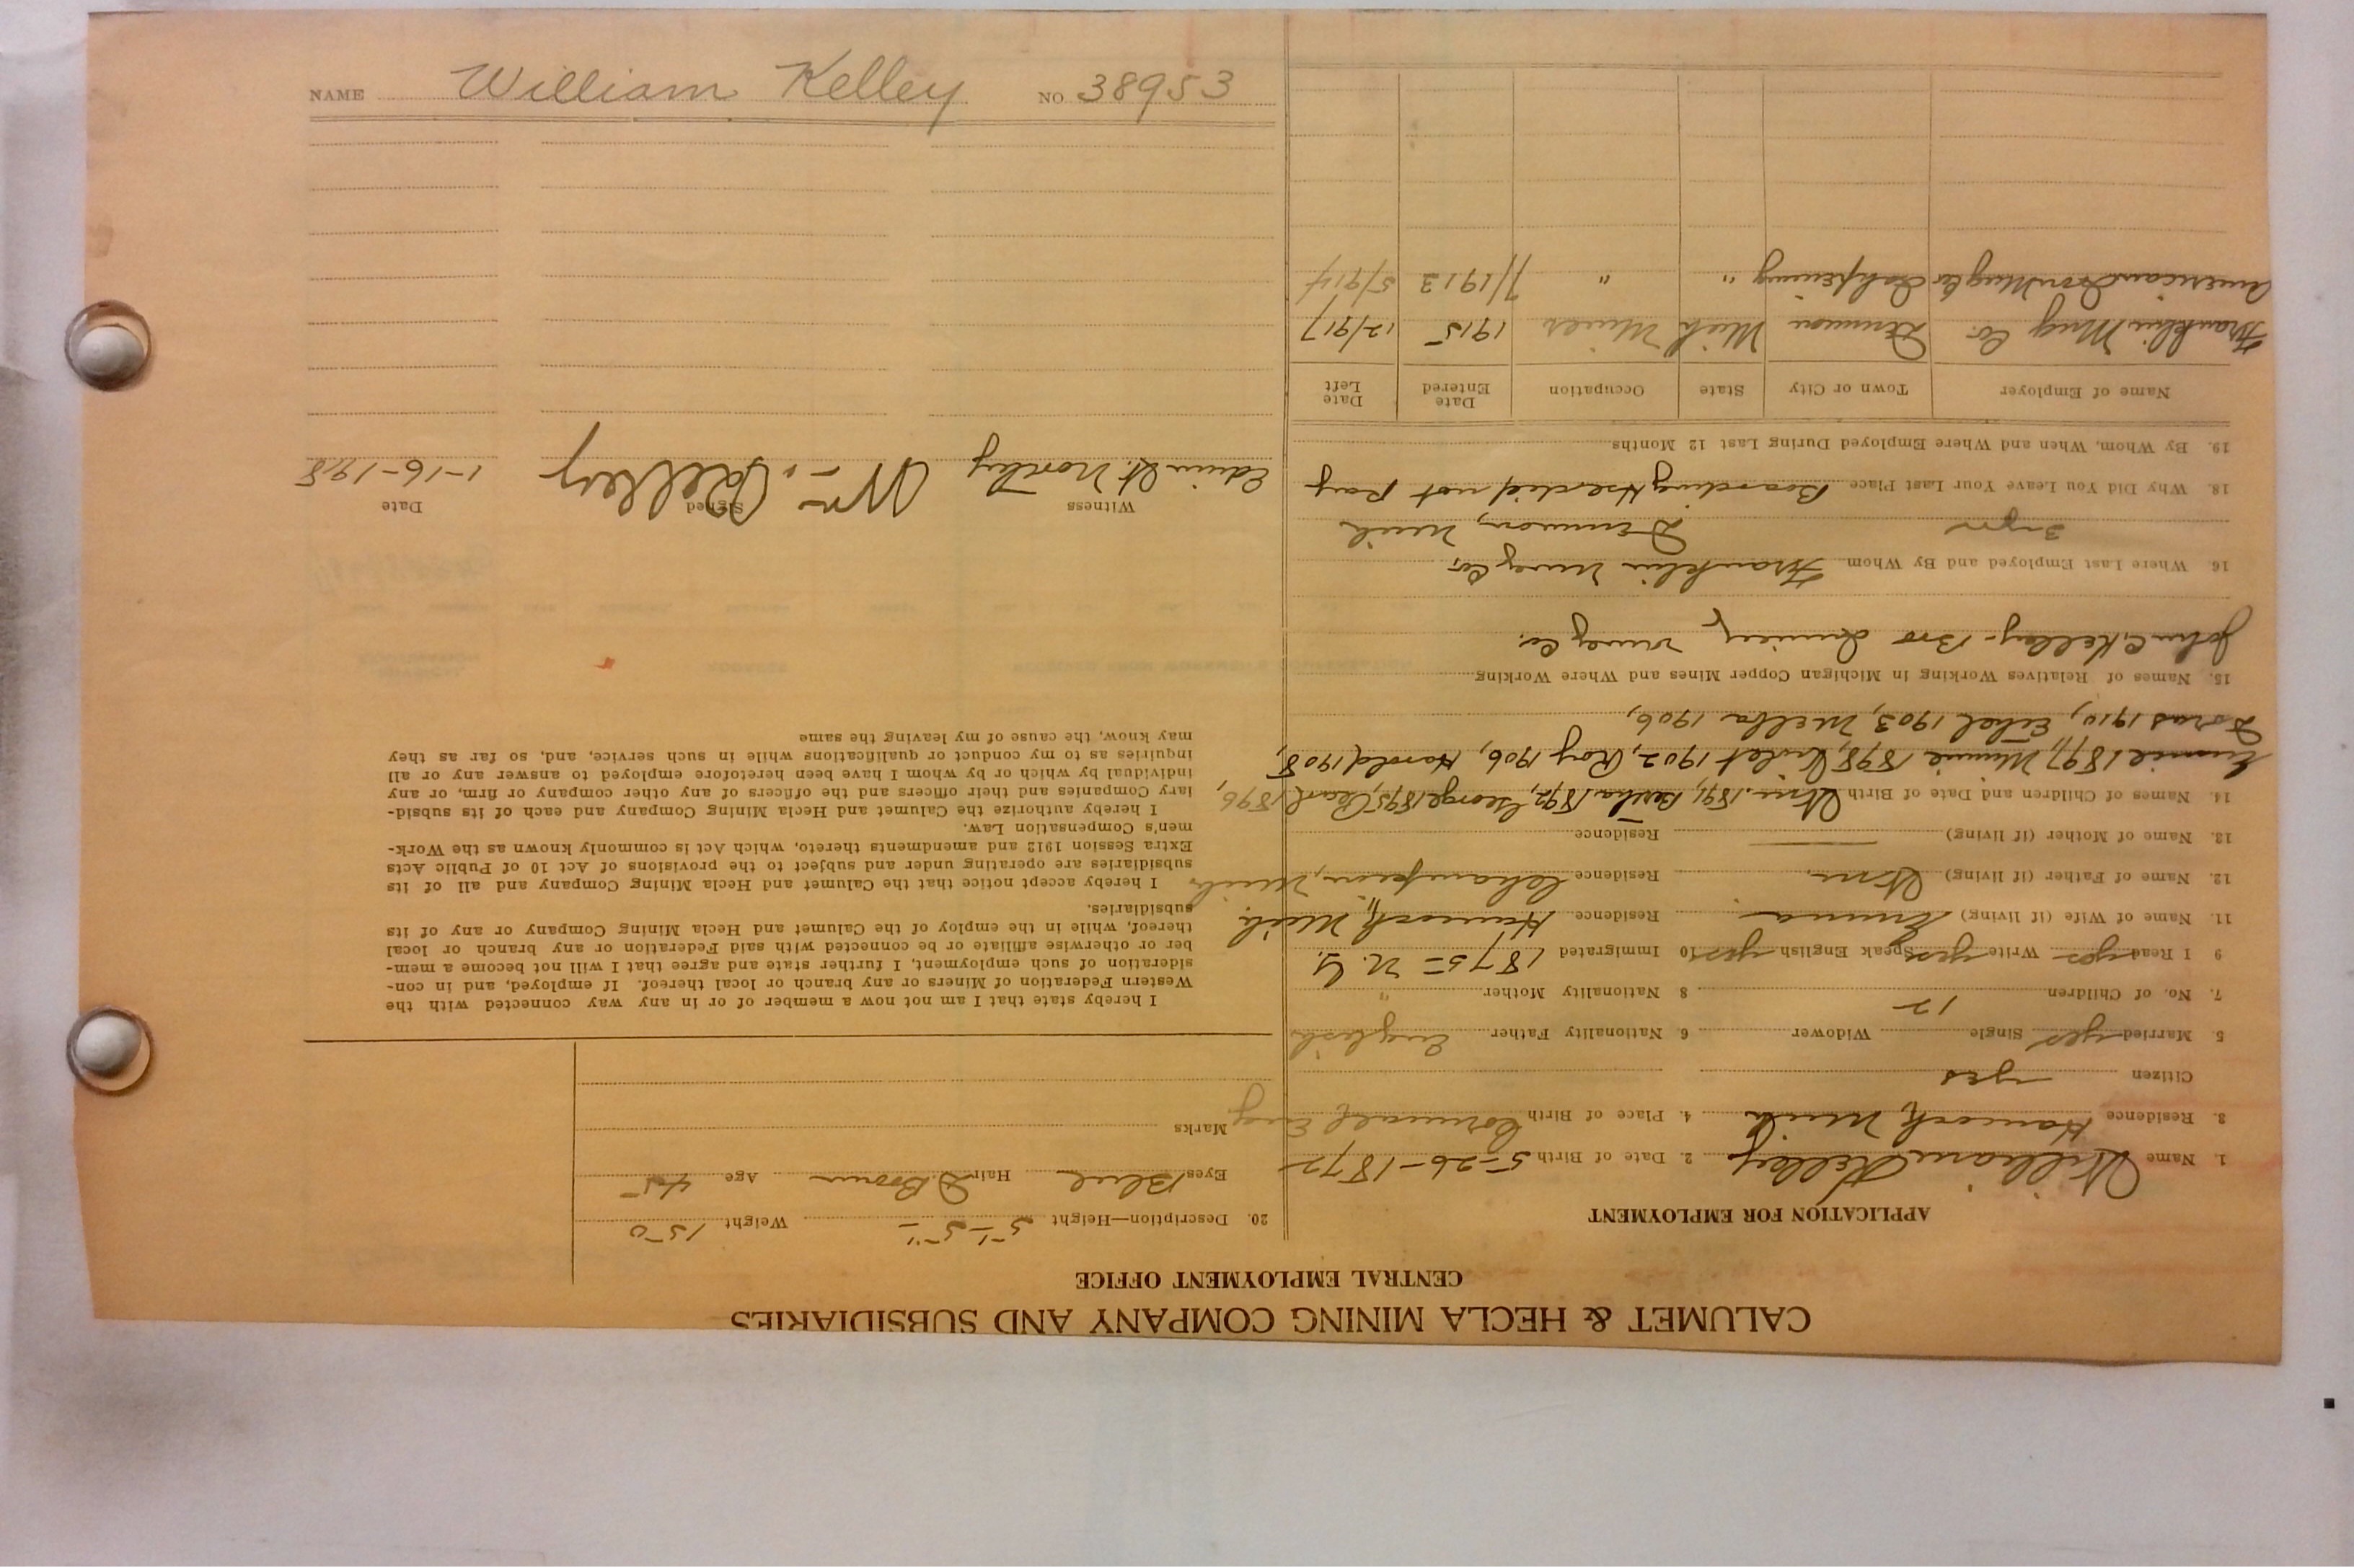 NAME William Kelley NO 38953
CALUMET & HECLA MINING COMPANY AND SUBSIDIARIES
CENTRAL EMPLOYMENT OFFICE
APPLICATION FOR EMPLOYMENT
1. Name William Kelley 2. Date of Birth 5-26-1872
3. Residence Hancock, Mich 4. Place of Birth Cornwall Eng
Citizen yes
5 Married yes Single Widower 6. Nationality Father English
7. No. of Children 12 8 Nationality Mother "
9 I Read yes Write yes Speak English yes 10 Immigrated 1875 = N.Y.
11. Name of Wife (if living) Emma Residence Hancock, Mich.
12. Name of Father (if living) Wm. Residence Champion, Mich
13. Name of Mother (if living) Residence
14. Names of Children and Date of Birth Wm. 1891, Bertha 1892, George 1895, Pearl 1896,
1897, Minnie 1898, Violet 1902, Roy 1906, Harold 1908,
Doras 1910, Ethel 1903, Melba 1906,
15. Names of Relatives Working in Michigan Copper Mines and Where Working
John C. Kelley - Bro Quincy Mineg Co.
16 Where Last Employed and By Whom Franklin Mineg Co,
Demmon, Mich
18. Why Did You Leave Your Last Place Boarding Hse did not Pay
19. By Whom, When and Where Employed During Last 12 Months
Name of Employer Town or City State Occupation Date Entered Date Left
Franklin Mng Co. Demmon Mich Miner 1915 12/917
American Iron Mng Co Ishpeming " " 7/1913 5/914
20. Description—Height 5'-5" Weight 150
Eyes Blue Hair D. Brown Age 45
Marks
I hereby state that I am not now a member of or in any way connected with the
Western Federation of Miners or any branch or local thereof. If employed, and in con-
sideration of such employment, I further state and agree that I will not become a mem-
ber or otherwise affiliate or be connected with said Federation or any branch or local
thereof, while in the employ of the Calumet and Hecla Mining Company or any of its
subsidiaries.
I hereby accept notice that the Calumet and Hecla Mining Company and all of its
subsidiaries are operating under and subject to the provisions of Act 10 of Public Acts
Extra Session 1912 and amendments thereto, which Act is commonly known as the Work-
men's Compensation Law.
I hereby authorize the Calumet and Hecla Mining Company and each of its subsid-
iary Companies and their officers and the officers of any other company or firm, or any
individual by which or by whom I have been heretofore employed to answer any or all
inquiries as to my conduct or qualifications while in such service, and, so far as they
may know, the cause of my leaving the same
Witness Signed Date
Edwin H. Wm. Kelley 1-16-1918